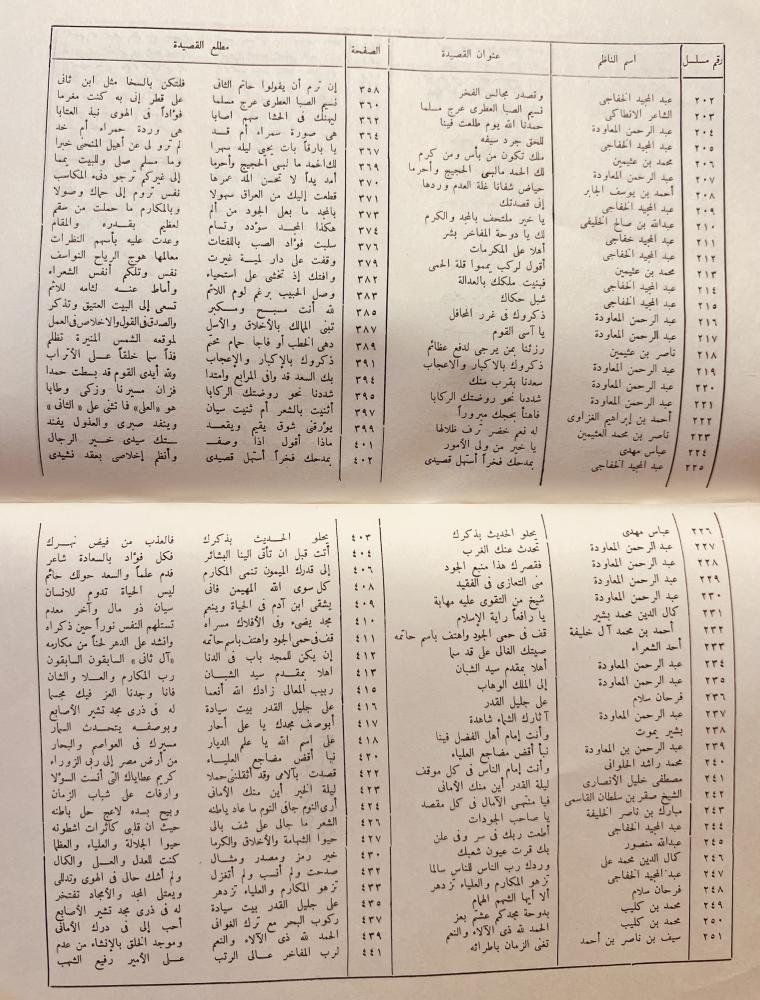 رقم مسلسل	اسم الناظم	عنوان القصيدة	الصفحة	مطلع القصيدة
٢٠٢ عبد المجيد الخفاجى وتصدر مجالس الفخر ٣٥٨ إن ترم أن يقولوا حاتم الثانى فلتكن بالسخا مثل ابن ثانى
٢٠٣ الشاعر الانطاكى نسيم الصبا العطرى عرج مسلما ٣٦٠ نسيم الصبا العطرى عرج مسلما على قطر إنى به كنت مغرما
٢٠٤ عبد الرحمن المعاودة حمدنا الله يوم طلعت فينا ٣٦٢ ليهنك فى الحشا سهم اصابا فؤاداً فى الهوى نبذ العتابا
٢٠٥ عبد المجيد الخفاجى للحق جرد سيفه ٣٦٤ هى صورة سمراء أم قد هى وردة حمراء أم خد
٢٠٦ محمد بن عثيمين ملك تكون من بأس ومن كرم ٣٦٧ يا بارقاً بات يحيى ليله سهرا لم ترو لى عن أهيل المنحنى خبرا
٢٠٧ عبد الرحمن المعاودة لك الحمد مالبى الحجيج وأحرما ٣٦٩ لك الحمد ما لبى الحجيج وأحرما وما مسلم صلى وللبيت يمما
٢٠٨ أحمد بن يوسف الجابر حياض شفانا غلة العدم وردها ٣٧٠ أمد يداً لا تحسن المد عمرها إلى غيركم ترجو دفىء المكاسب
٢٠٩ عبد المجيد الخفاجى إنى قصدتك ٣٧١ قطعت إليك من العراق سهولا نفس تروم إلى حماك وصولا
٢١٠ عبدالله بن صالح الخليفى يا خير ملتحف بالمجد والكرم ٣٧٣ بالمجد ما بعلى الجود من ألم وبالمكارم ما حملت من سقم
٢١١ عبد المجيد خفاجى لك يا دوحة المفاخر بشر ٣٧٤ هكذا المجد سؤدد وتسام لعظيم بقدره والمقام
٢١٢ عبد المجيد الخفاجى أهلا على المكرمات ٣٧٦ سلبت فؤاد الصب باللفتات وعدت عليه بأسهم النظرات
٢١٣ محمد بن عثيمين أقول لركب يمموا قلة الحمى ٣٧٩ وقفت على دار لمية غيرت معالمها هوج الرياح النواسف
٢١٤ عبد المجيد الخفاجى فبنيت ملكك بالعدالة ٣٨٢ وافتك إذ تخشى على استحياء نفس وتلكم أنفس الشعراء
٢١٥ عبد المجيد الخفاجى شبل حكاك ٣٨٣ وصل الحبيب برغم لوم اللائم وأماط عنه لثامه للاثم
٢١٦ عبد الرحمن المعاودة ذكروك فى غرر المحافل ٣٨٥ لله أنت مسبح ومكبر تسعى إلى البيت العتيق وتذكر
٢١٧ عبد الرحمن المعاودة يا آسى القوم ٣٨٧ تبنى الممالك بالأخلاق والأسل والصدق فى القول والاخلاص فى العمل
٢١٨ ناصر بن عثيمين رزئنا بمن يرجى لدفع عظائم ٣٨٩ دهى الخطب أو فاجا حمام محتم لموقعه الشمس المنيرة تظلم
٢١٩ عبد الرحمن المعاودة ذكروك بالاكبار والاعجاب ٣٩١ ذكروك بالإكبار والإعجاب فذاً سما خلقاً على الأتراب
٢٢٠ عبد الرحمن المعاودة سعدنا بقرب منك ٣٩٤ بك السعد قد وافى المرابع وامتدا ولله أيدى القوم قد بسطت حمدا
٢٢١ عبد الرحمن المعاودة شددنا نحو روضتك الركابا ٣٩٥ شددنا نحو روضتك الركابا فزان مسيرنا وزكى وطابا
٢٢٢ أحمد بن إبراهيم الغزاوى فاهنأ بحجك مبروراً ٣٩٧ أثنيت بالشعر أم ثنيت سيان هو «العلى» فا تثنى على «الثانى»
٢٢٣ ناصر بن محمد العثيمين له نعم خضر ترف ظلالها ٣٩٩ يؤرقنى شوق يقيم ويقعد وينفد صبرى والعذول يفند
٢٢٤ عباس مهدى يا خير من ولى الأمور ٤٠١ ماذا أقول اذا وصفتك سيدى خير الرجال
٢٢٥ عبد المجيد الخفاجى بمدحك فخراً أستهل قصيدى ٤٠٢ بمدحك فخراً أستهل قصيدى وأنظم إخلاصى بعقد نشيدى
٢٢٦ عباس مهدى يحلو الحديث بذكرك ٤٠٣ يحلو الحديث بذكرك فالعذب من فيض نهرك
٢٢٧ عبد الرحمن المعاودة تحدث عنك الغرب ٤٠٤ أتت قبل ان تأتى الينا البشائر فكل فؤاد بالسعادة شاعر
٢٢٨ عبد الرحمن المعاودة فقصرك هذا منبع الجود ٤٠٦ إلى قدرك الميمون تنمى المكارم فدم علماً والسعد حولك حائم
٢٢٩ عبد الرحمن المعاودة منى التعازى فى الفقيد ٤٠٨ كل سوى الله المهيمن فانى ليس الحياة تدوم للانسان
٢٣٠ عبد الرحمن المعاودة شيخ من التقوى عليه مهابة ٤٠٩ يشقى ابن آدم فى الحياة وينعم سيان ذو مال وآخر معدم
٢٣١ كمال الدين محمد بشير يا رافعاً راية الإسلام ٤١٠ مجد يضىء وفى الأفلاك مسراه تستلهم النفس نوراً حين ذكراه
٢٣٢ أحمد بن محمد آل خليفة قف فى حمى الجود واهتف باسم حاتمه ٤١١ قف فى حمى الجود واهتف باسم حاتمه وانشد على الدهر لحناً من مكارمه
٢٣٣ أحد الشعراء صيتك الغالى على قد سما ٤١٢ إن يكن للمجد باب فى الدنا «آل ثانى» السابقون السابقون
٢٣٤ عبد الرحمن المعاودة أهلا بمقدم سيد الشبان ٤١٣ أهلا بمقدم سيد الشبان رب المكارم والعلا والشان
٢٣٥ عبد الرحمن المعاودة إلى الملك الوهاب ٤١٥ ربيب المعالى زادك الله أنعما فانا وجدنا العز فيك مجسما
٢٣٦ فرحان سلام على جليل القدر ٤١٦ على جليل القدر بيت سيادة له فى ذرى مجد تشير الأصابع
٢٣٧ عبد الرحمن المعاودة آثارك الشماء شاهدة ٤١٧ أبوصف مجدك يا على أحار وبوصفه يتحدث السمار
٢٣٨ بشير يموت وأنت إمام أهل الفضل فينا ٤١٨ على اسم الله يا علم الديار مسيرك فى العواصم والبحار
٢٣٩ عبد الرحمن بن المعاودة نبأ أقض مضاجع العلياء ٤٢٠ نبا أقض مضاجع العلياء من أرض مصر إلى ربى الزوراء
٢٤٠ محمد راشد الحلوانى وأنت إمام الناس فى كل موقف ٤٢٢ قصدت بآلامى وقد أثقلتنى حملا كريم عطاياك التى أنست السؤلا
٢٤١ مصطفى خليل الأنصارى ليلة القدر أين منك الأمانى ٤٢٣ ليلة الخير أين منك الأمانى وارفات على شباب الزمان
٢٤٢ الشيخ صقر بن سلطان القاسمى فيا منتهى الآمال فى كل مقصد ٤٢٤ أرى النوم جافى النوم ما عاد باطنه وبيح بسده لاعج حل باطنه
٢٤٣ مبارك بن ناصر الخليفة يا صاحب الجودات ٤٢٦ الشعر ما جالى على شف بالى حيث ان قلبى كاثرات اشطونه
٢٤٤ عبد المجيد الخفاجى أطعت ربك فى سر وفى علن ٤٢٧ حيوا الشهامة والأخلاق والكرما حيوا الجلالة والعلياء والعظما
٢٤٥ عبدالله منصور بك قرت عيون شعبك ٤٣٠ خير رمز ومصدر ومثال كنت للعدل والعلى والكمال
٢٤٦ كمال الدين محمد على وردك رب الناس للناس سالما ٤٣٢ صدحت ولم أنسب ولم أتغزل ولم أشك حالى فى الهوى وتدللى
٢٤٧ عبد المجيد الخفاجى تزهو المكارم والعلياء تزدهر ٤٣٣ تزهو المكارم والعلياء تزدهر ويعتلى المجد والأمجاد تفتخر
٢٤٨ فرحان سلام ألا أيها الشهم الهمام ٤٣٥ على جليل القدر بيت سيادة له فى ذرى مجد تشير الأصابع
٢٤٩ محمد بن كليب بدوحة مجدكم عشتم بعز ٤٣٧ ركوب البحر مع ترك الغوانى أحب إلى فى درك الأمانى
٢٥٠ محمد بن كليب الحمد لله ذى الآلاء والنعم ٤٣٩ الحمد لله ذى الآلاء والنعم وموجد الخلق بالإنشاء من عدم
٢٥١ سيف بن ناصر بن أحمد تغنى الزمان باطرائه ٤٤١ لرب المفاخر عالى الرتب على الأمير رفيع الشهب